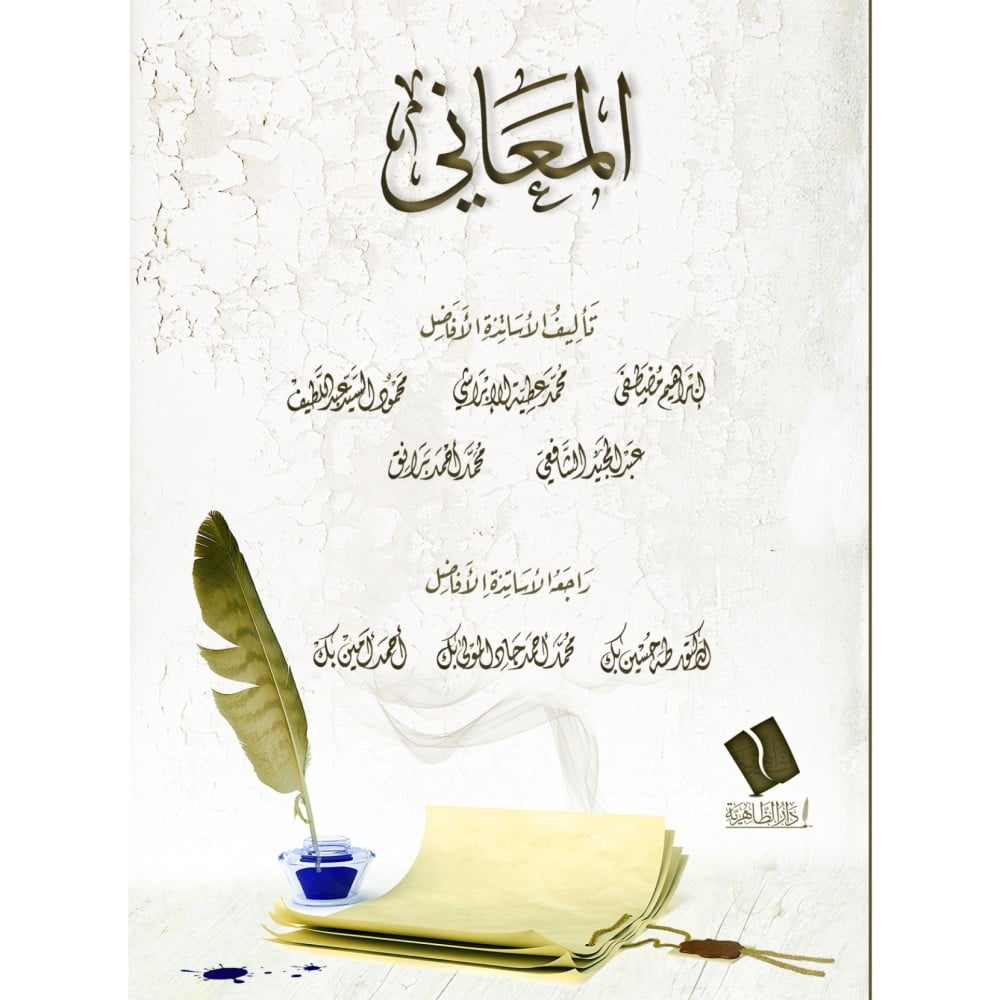 المَعَاني
تَأليفُ الأسَاتِذةِ الأفَاضِل
إبْرَاهِيم مُصْطَفَى مُحَمَّد عَطِيَّة الإبْرَاشِي مَحْمُوْد السَّيِّد عَبد اللَّطِيف
عَبْد المَجِيْد الشَّافِعِيّ مُحَمَّد أحْمَد بَرَانِق
رَاجَعَهُ الأسَاتِذةُ الأفَاضِل
الدكتور طه حُسَيْن بك مُحَمَّد أحمَد جَاد المَوْلى بك أحمَد أمِيْن بك
دَارُ الظَّاهِرِيَّة